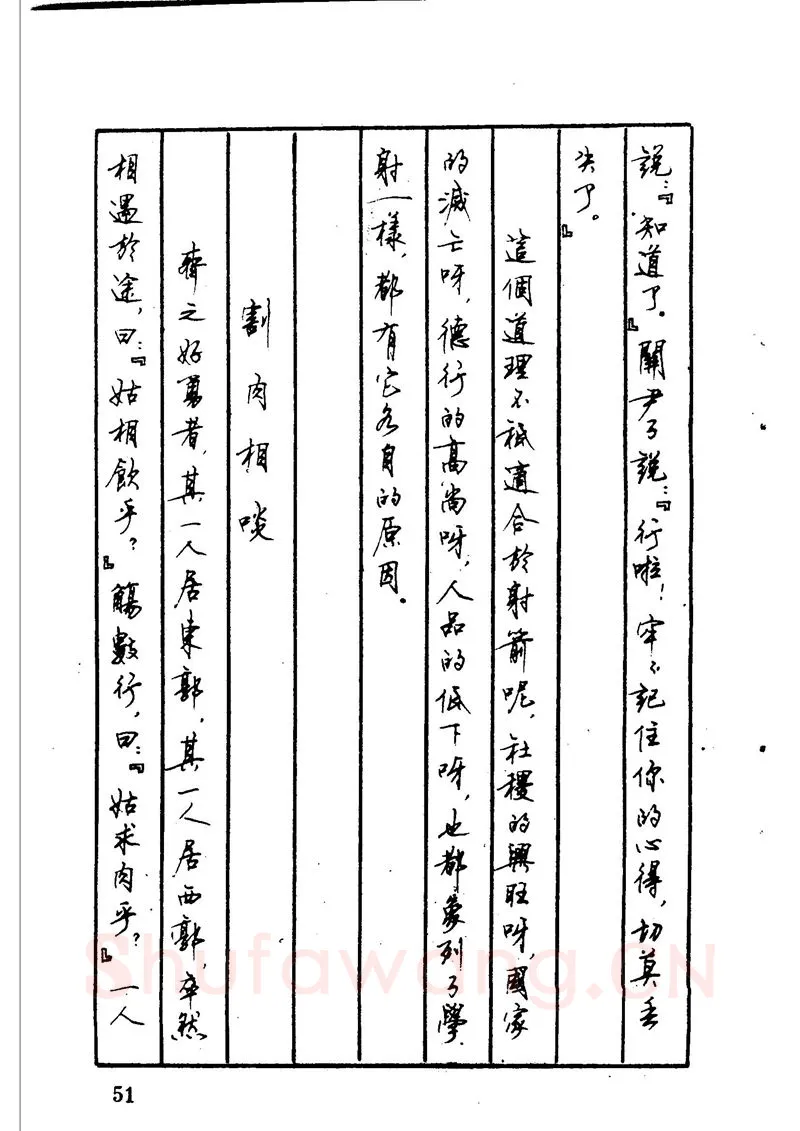 說：『知道了。』關尹子說：『行啦！牢々記住你的心得，切莫丟
失了。』
這個道理不祗適合於射箭呢，社稷的興旺呀，國家
的滅亡呀，德行的高尚呀，人品的低下呀，也都象列子學
射一樣，都有它各自的原因。
割肉相啖
齊之好勇者，其一人居東郭，其一人居西郭，卒然
相遇於途，曰：『姑相飲乎？』觴數行，曰：『姑求肉乎？』一人
51
Shufawang.CN